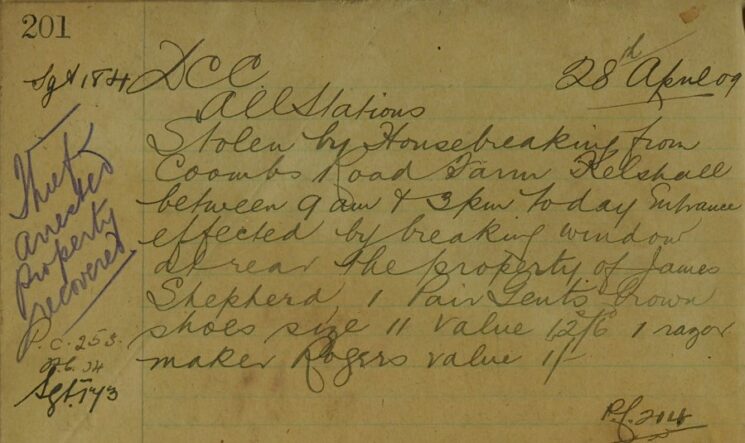 201
Sgt 184
DCC
28th April 09
All Stations
Stolen by Housebreaking from
Coombs Road Farm Kelshall
between 9 am & 3 pm today Entrance
effected by breaking window
at rear The property of James
Shepherd, 1 Pair Gents brown
shoes size 11 value 12/6 1 razor
maker Rogers value 1/-
Thief
arrested
Property
recovered
P.C. 253.
34
Sgt. 173
P.C. 204